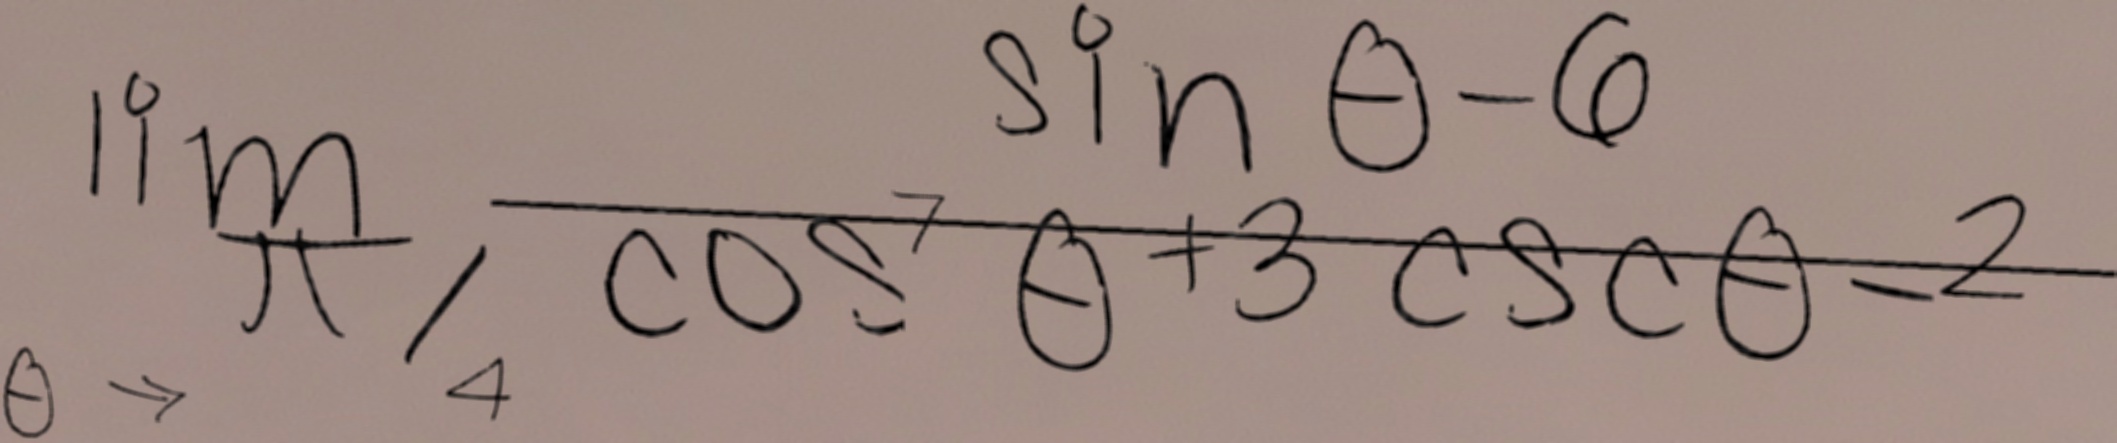 \lim_{\theta \to \pi/4} \frac{\sin \theta - 6}{\cos^7 \theta + 3 \csc \theta - 2}